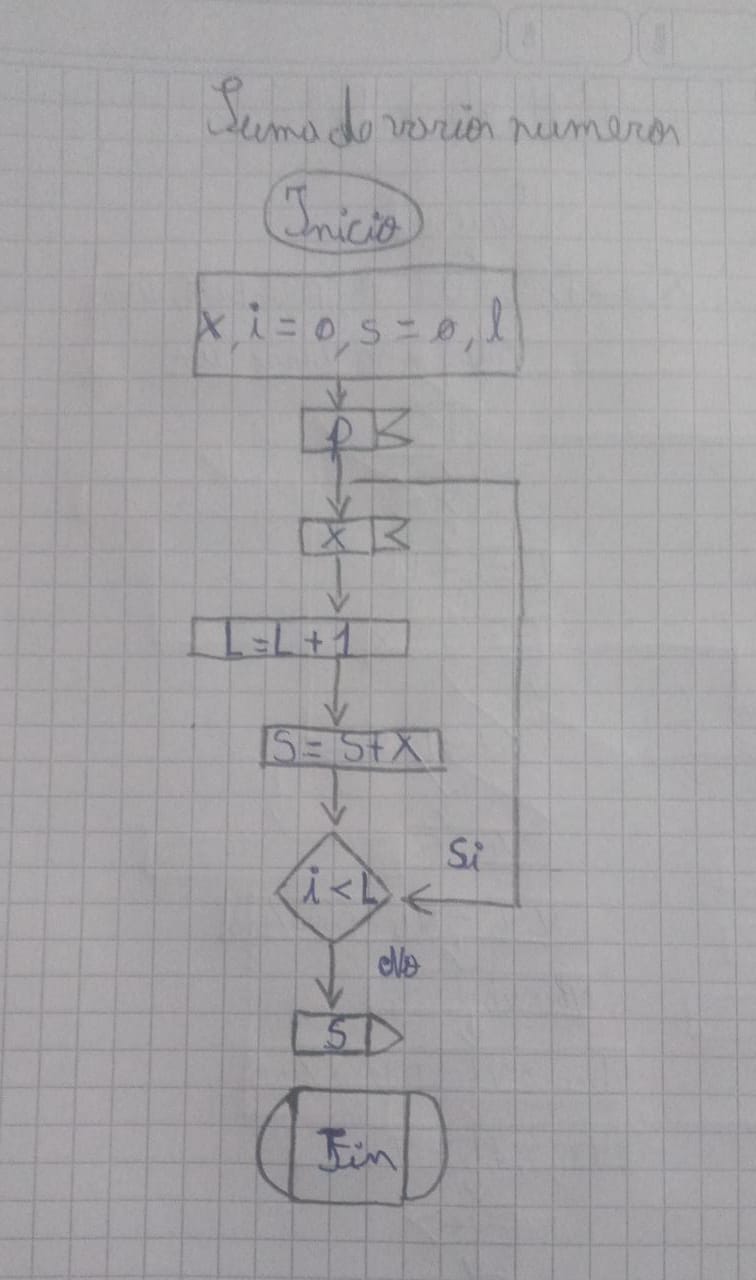 Suma de varios numeros
Inicio
x, i = 0, s = 0, l
p
x
L=L+1
S=S+X
Si
i<L
No
S
Fin